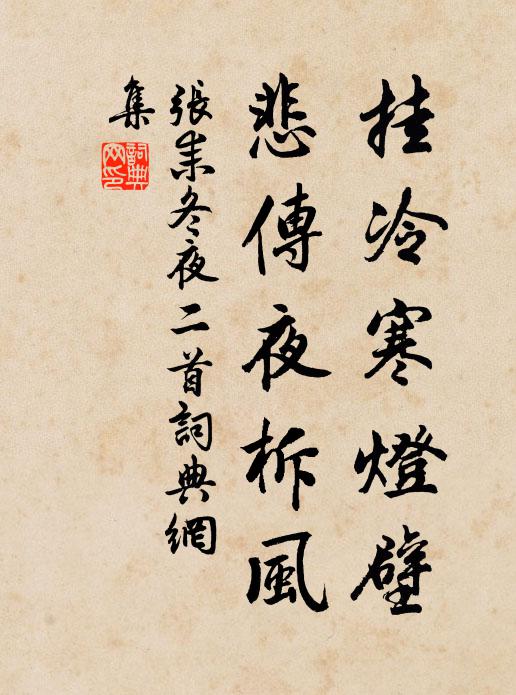 挂冷寒燈壁
悲傳夜柝風
張耒冬夜二首詞典網
集
詞典
網印